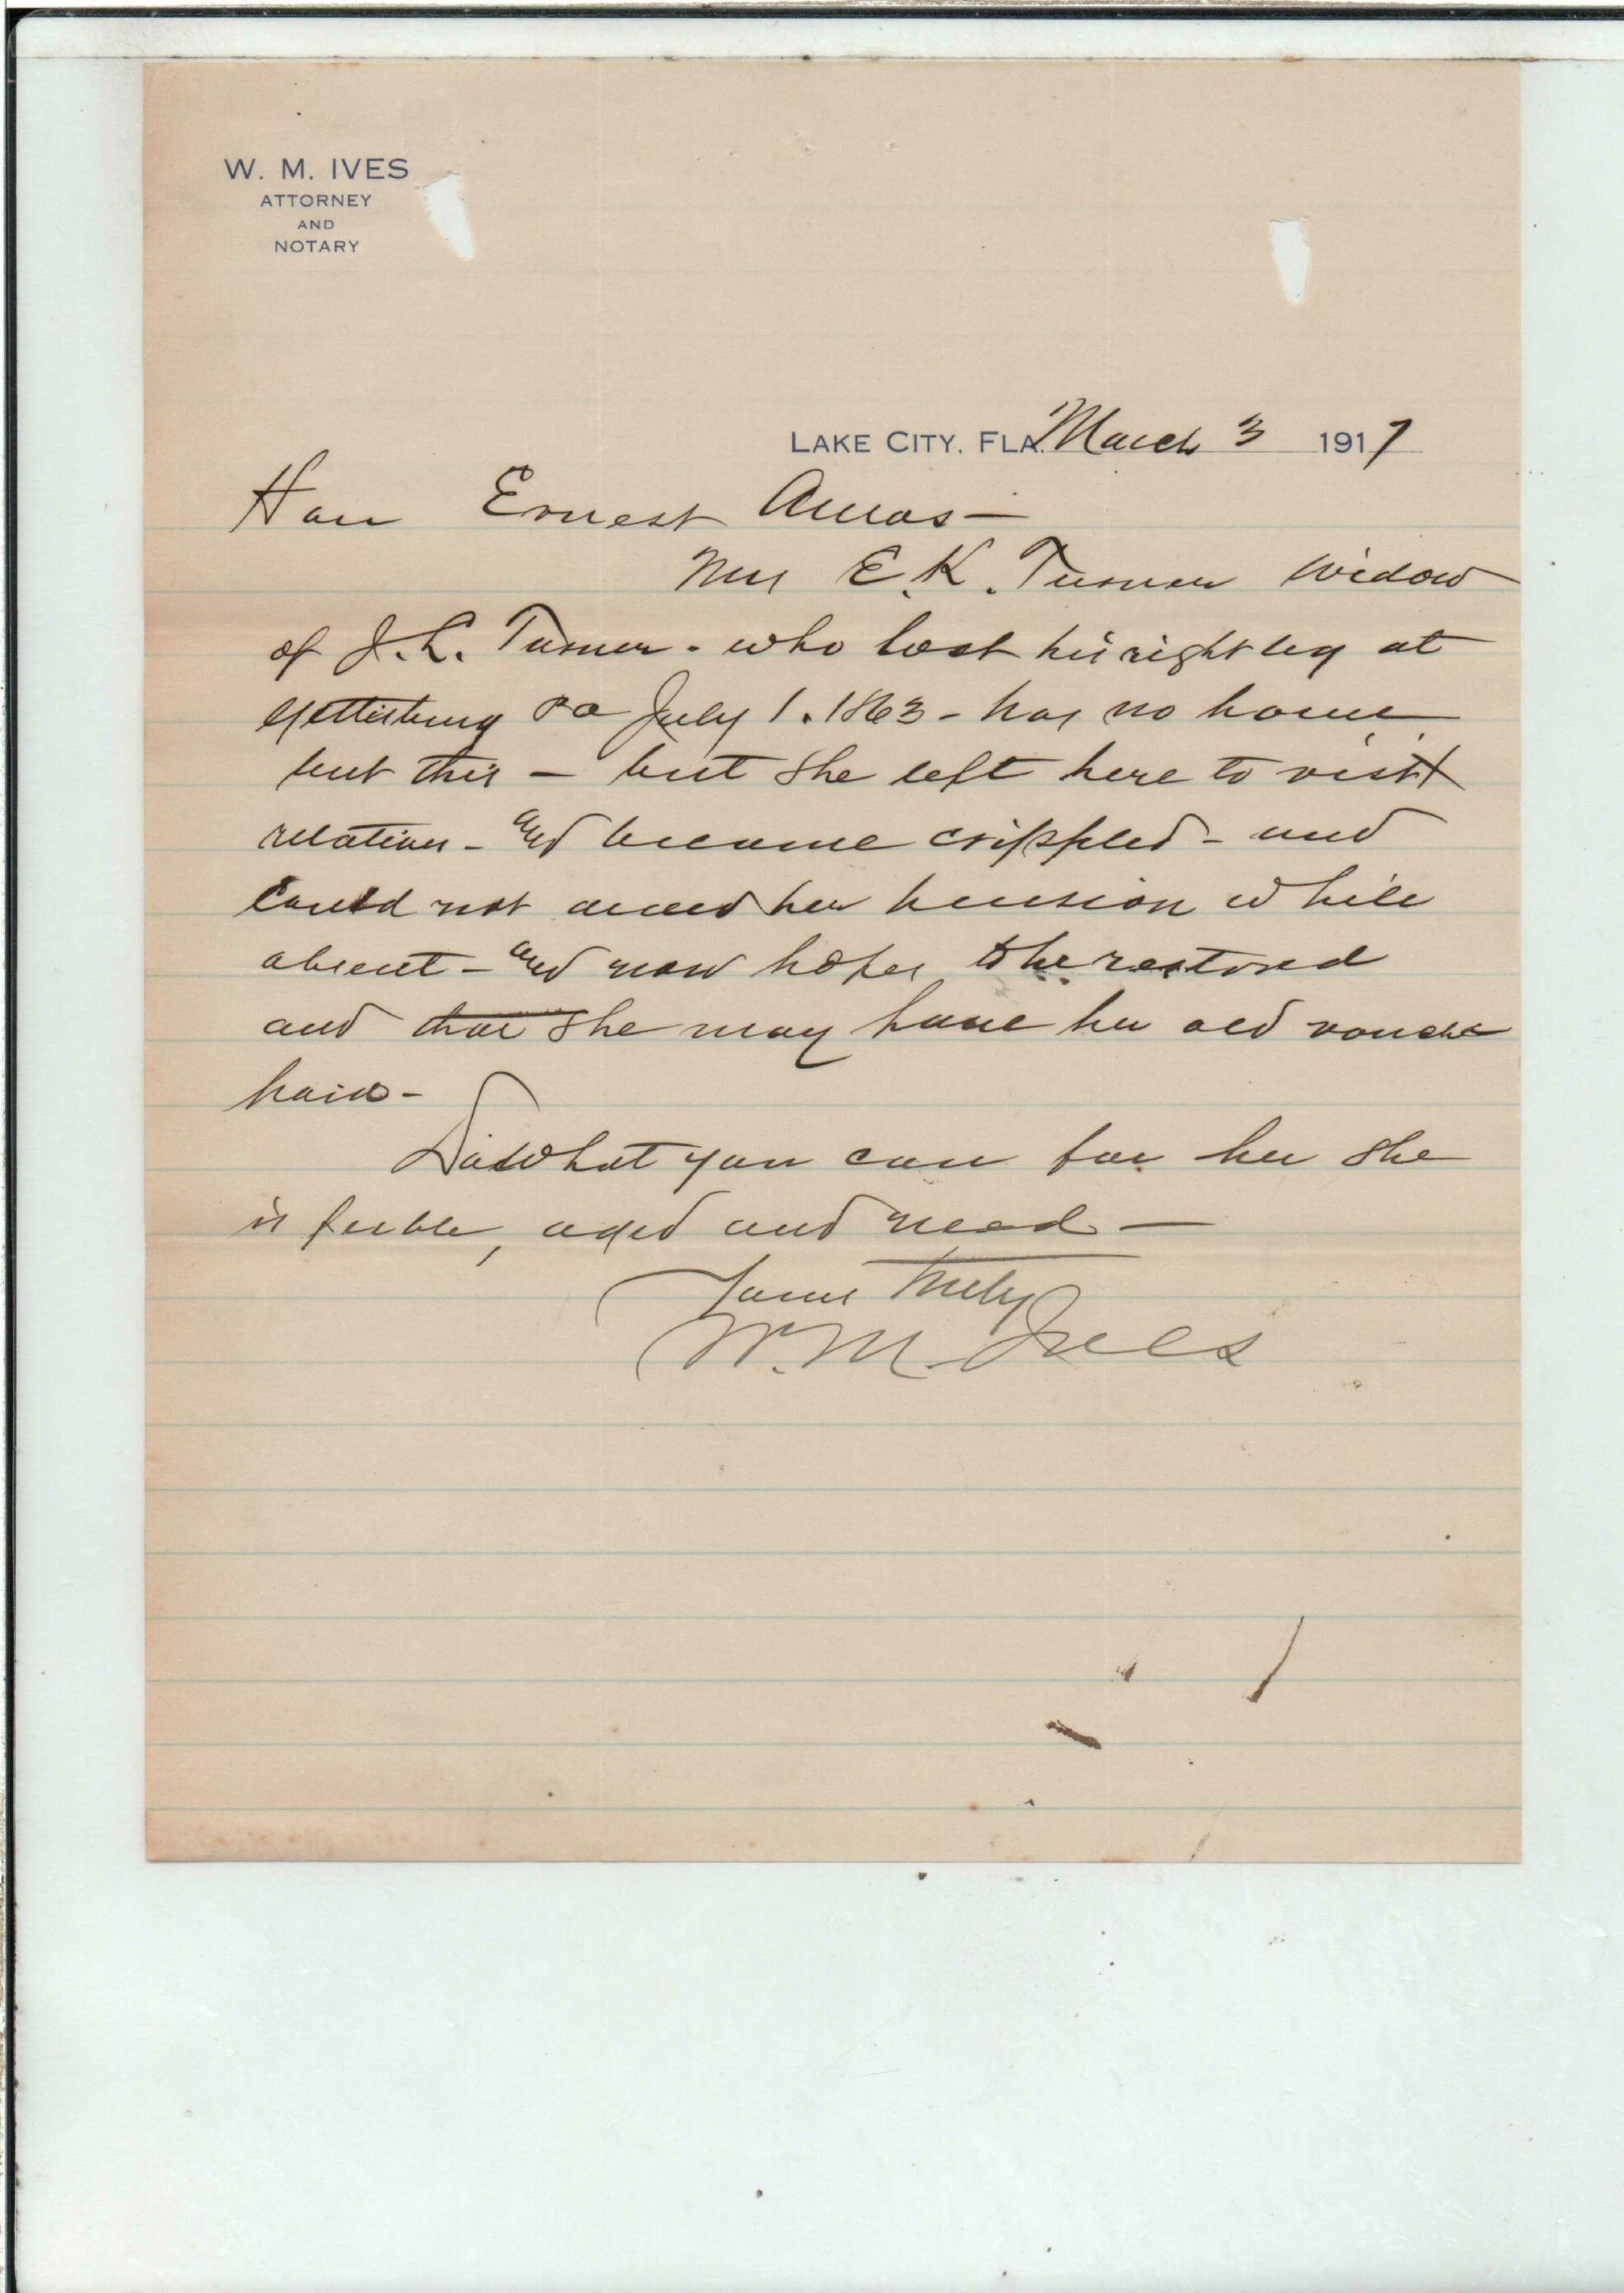 W. M. IVES
ATTORNEY
AND
NOTARY
LAKE CITY, FLA. March 3 1917
Hon Ernest Amos —
Mrs E. K. Turner widow
of J. L. Turner - who lost his right leg at
Gettisburg Pa July 1. 1863 - has no home
but this — but she left here to visit
relatives - and became crippled - and
could not draw her pension while
absent - and now hopes to be restored
and that she may have her old vouche
paid -
Do what you can for her she
is feeble, aged and need —
Yours truly
W. M. Ives